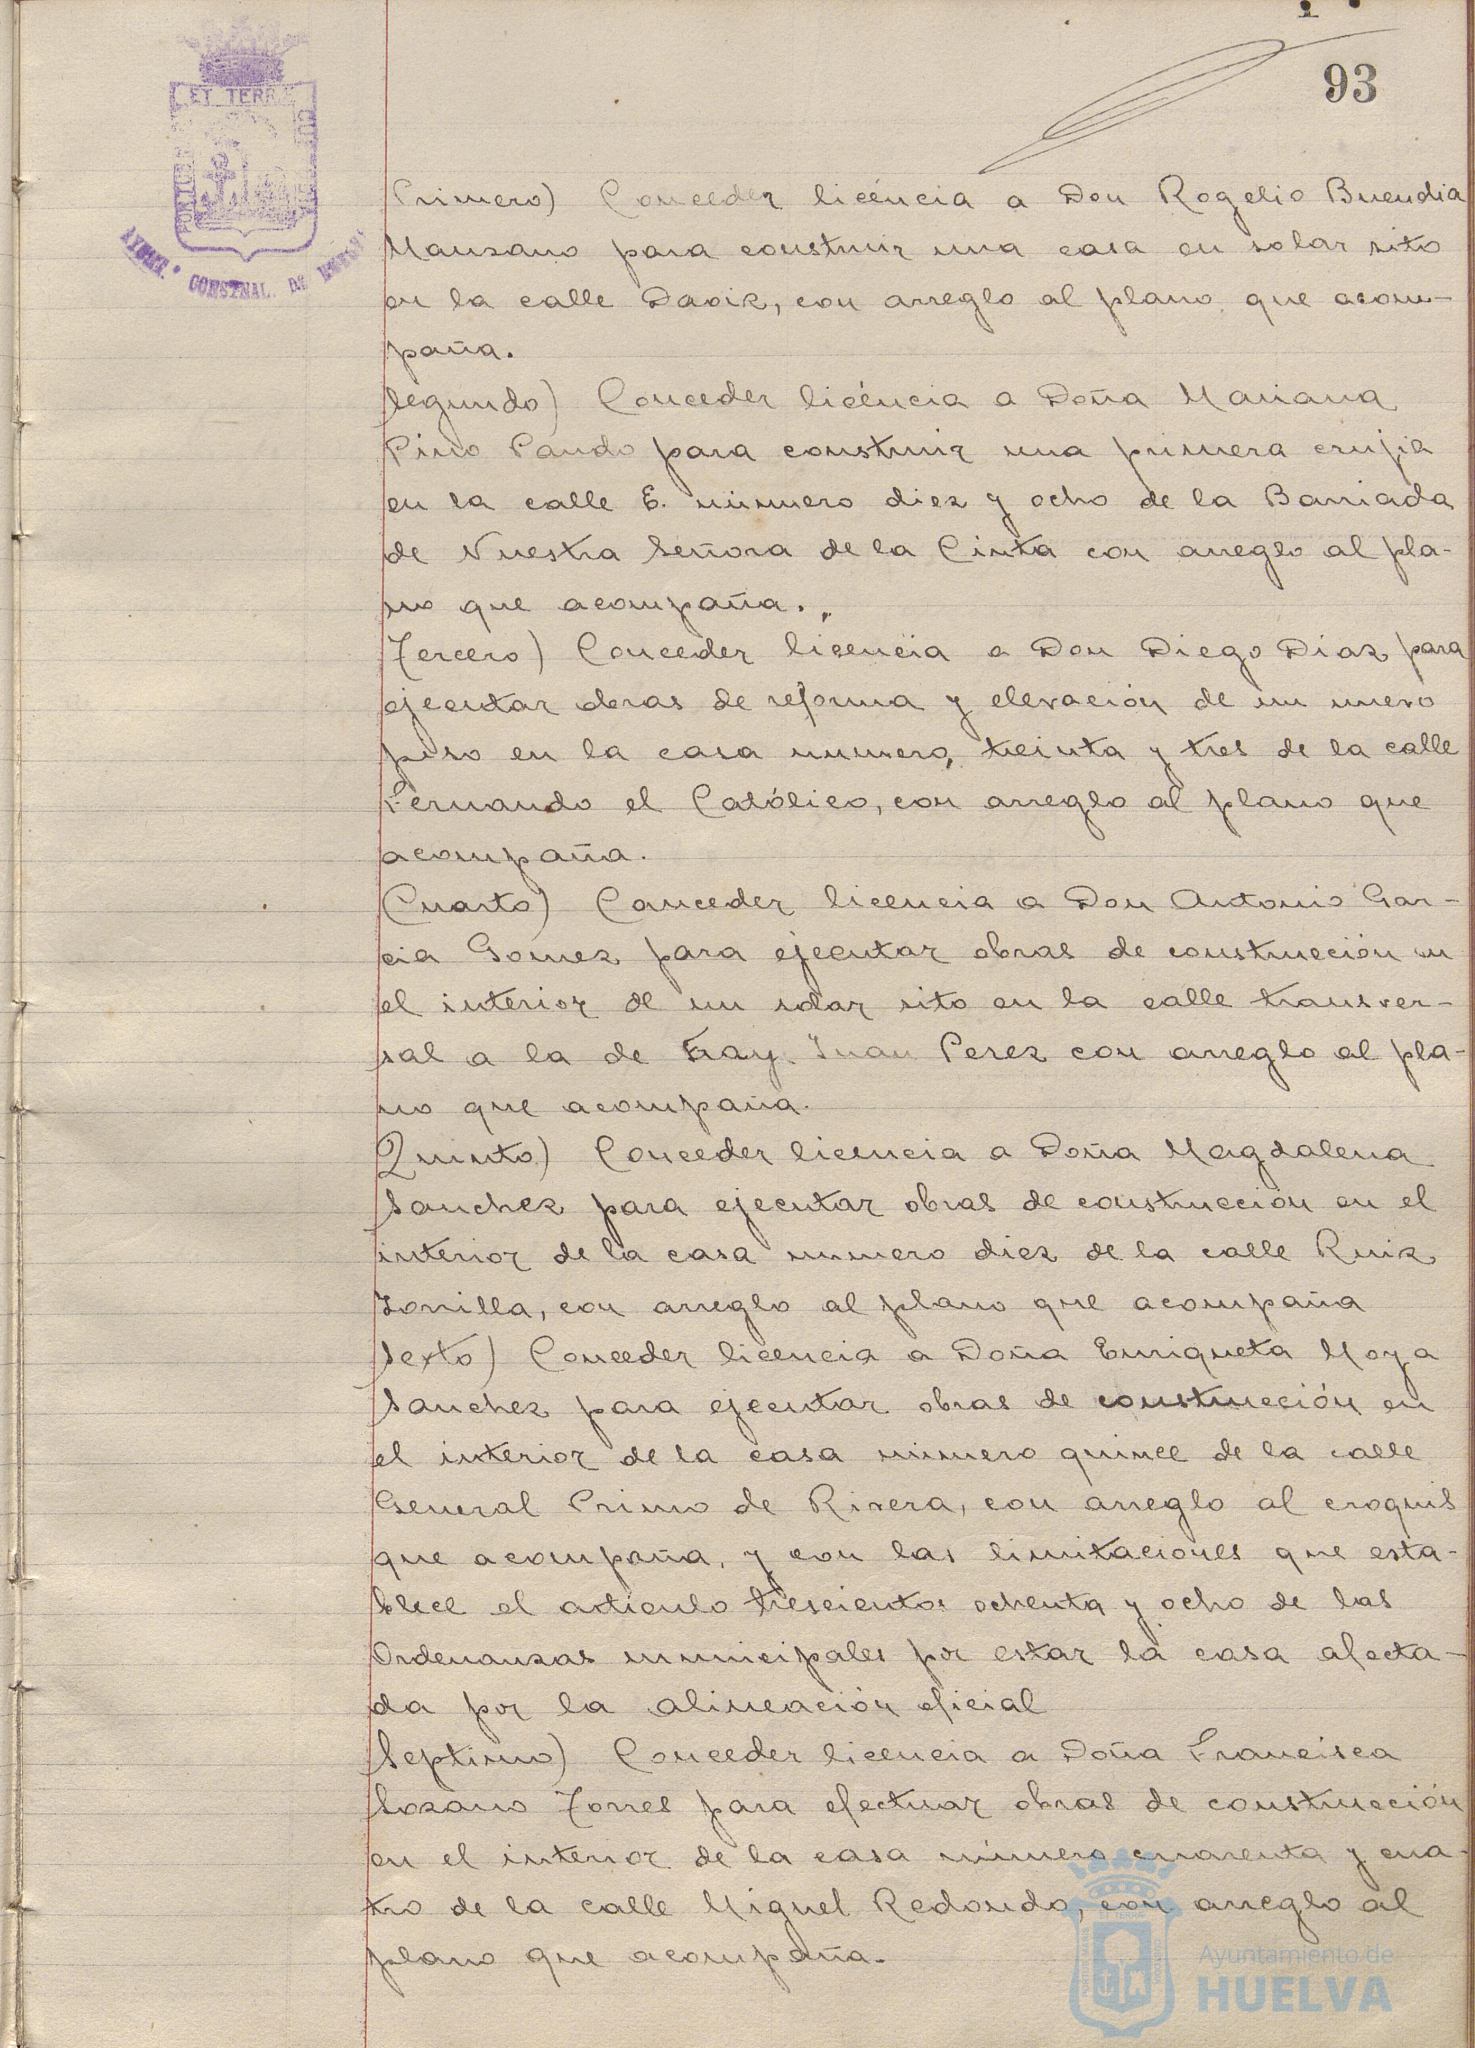 ET TERR
AYUNT.º CONSTNAL. DE HUELVA
93
Primero) Conceder licéncia a Don Rogelio Buendia
Manzano para construir una casa en solar sito
en la calle Daoiz, con arreglo al plano que acom-
paña.
Segundo) Conceder licéncia a Doña Mariana
Pino Pando para construir una primera crujia
en la calle E. número diez y ocho de la Barriada
de Nuestra Señora de la Cinta con arreglo al pla-
no que acompaña.
Tercero) Conceder licencia a Don Diego Diaz para
ejecutar obras de reforma y elevación de un nuevo
piso en la casa numero, treinta y tres de la calle
Fernando el Católico, con arreglo al plano que
acompaña.
Cuarto) Conceder licencia a Don Antonio Gar-
cia Gomez para ejecutar obras de construcción en
el interior de un solar sito en la calle transver-
sal a la de Fray Juan Perez con arreglo al pla-
no que acompaña.
Quinto) Conceder licencia a Doña Magdalena
Sanchez para ejecutar obras de construcción en el
interior de la casa numero diez de la calle Ruiz
Zorrilla, con arreglo al plano que acompaña
Sexto) Conceder licencia a Doña Enriqueta Moya
Sanchez para ejecutar obras de construcción en
el interior de la casa número quince de la calle
General Primo de Rivera, con arreglo al croquis
que acompaña, y con las limitaciones que esta-
blece el articulo trescientos ochenta y ocho de las
Ordenanzas municipales por estar la casa afecta-
da por la alineación oficial
Septimo) Conceder licencia a Doña Francisca
Lozano Torres para efectuar obras de construcción
en el interior de la casa número cuarenta y cua-
tro de la calle Miguel Redondo, con arreglo al
plano que acompaña.
Ayuntamiento de
HUELVA